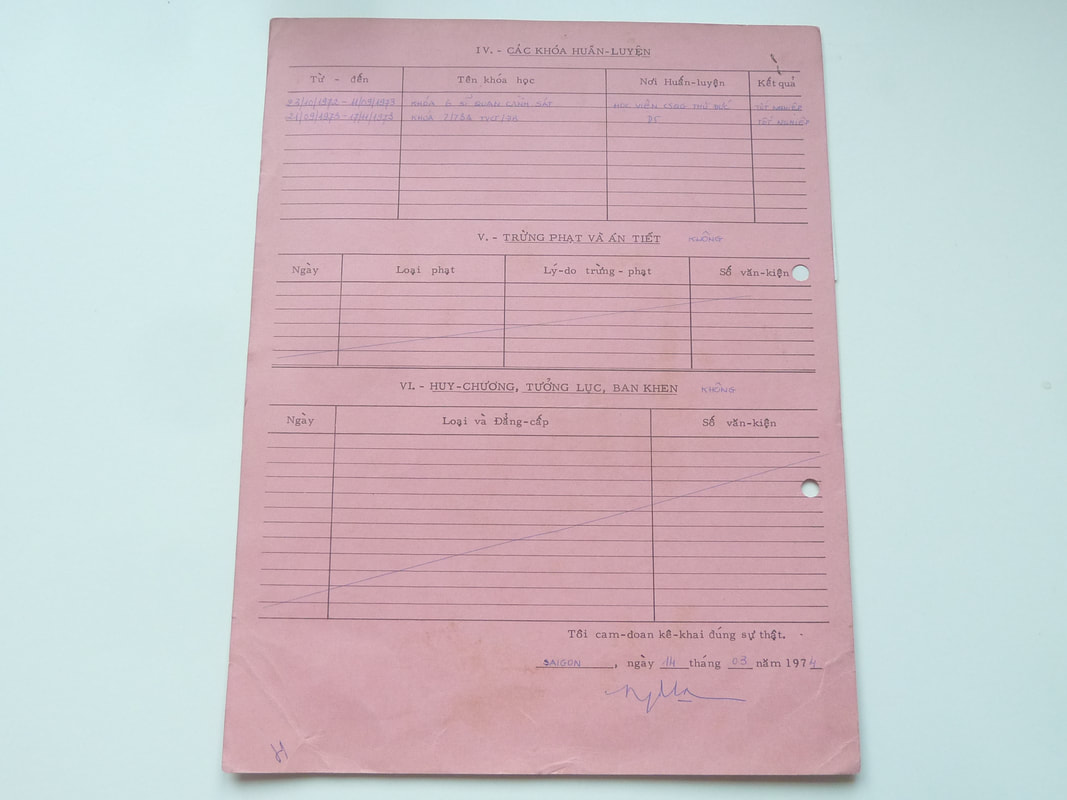 IV.- CÁC KHÓA HUẤN-LUYỆN
Từ - đến Tên khóa học Nơi Huấn-luyện Kết quả
23/10/1972 - 11/09/1973 KHÓA 6 SĨ QUAN CẢNH SÁT HỌC VIỆN CSQG THỦ ĐỨC TỐT NGHIỆP
21/09/1973 - 17/11/1973 KHOÁ 7/73A TỐT NGHIỆP
V.- TRỪNG PHẠT VÀ ÁN TIẾT KHÔNG
Ngày Loại phạt Lý-do trừng-phạt Số văn-kiện
VI.- HUY-CHƯƠNG, TƯỞNG LỤC, BAN KHEN KHÔNG
Ngày Loại và Đẳng-cấp Số văn-kiện
Tôi cam-đoan kê-khai đúng sự thật.
SAIGON, ngày 14 tháng 03 năm 1974